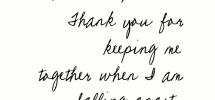 Thank you for
keeping me
together when I am
falling apart